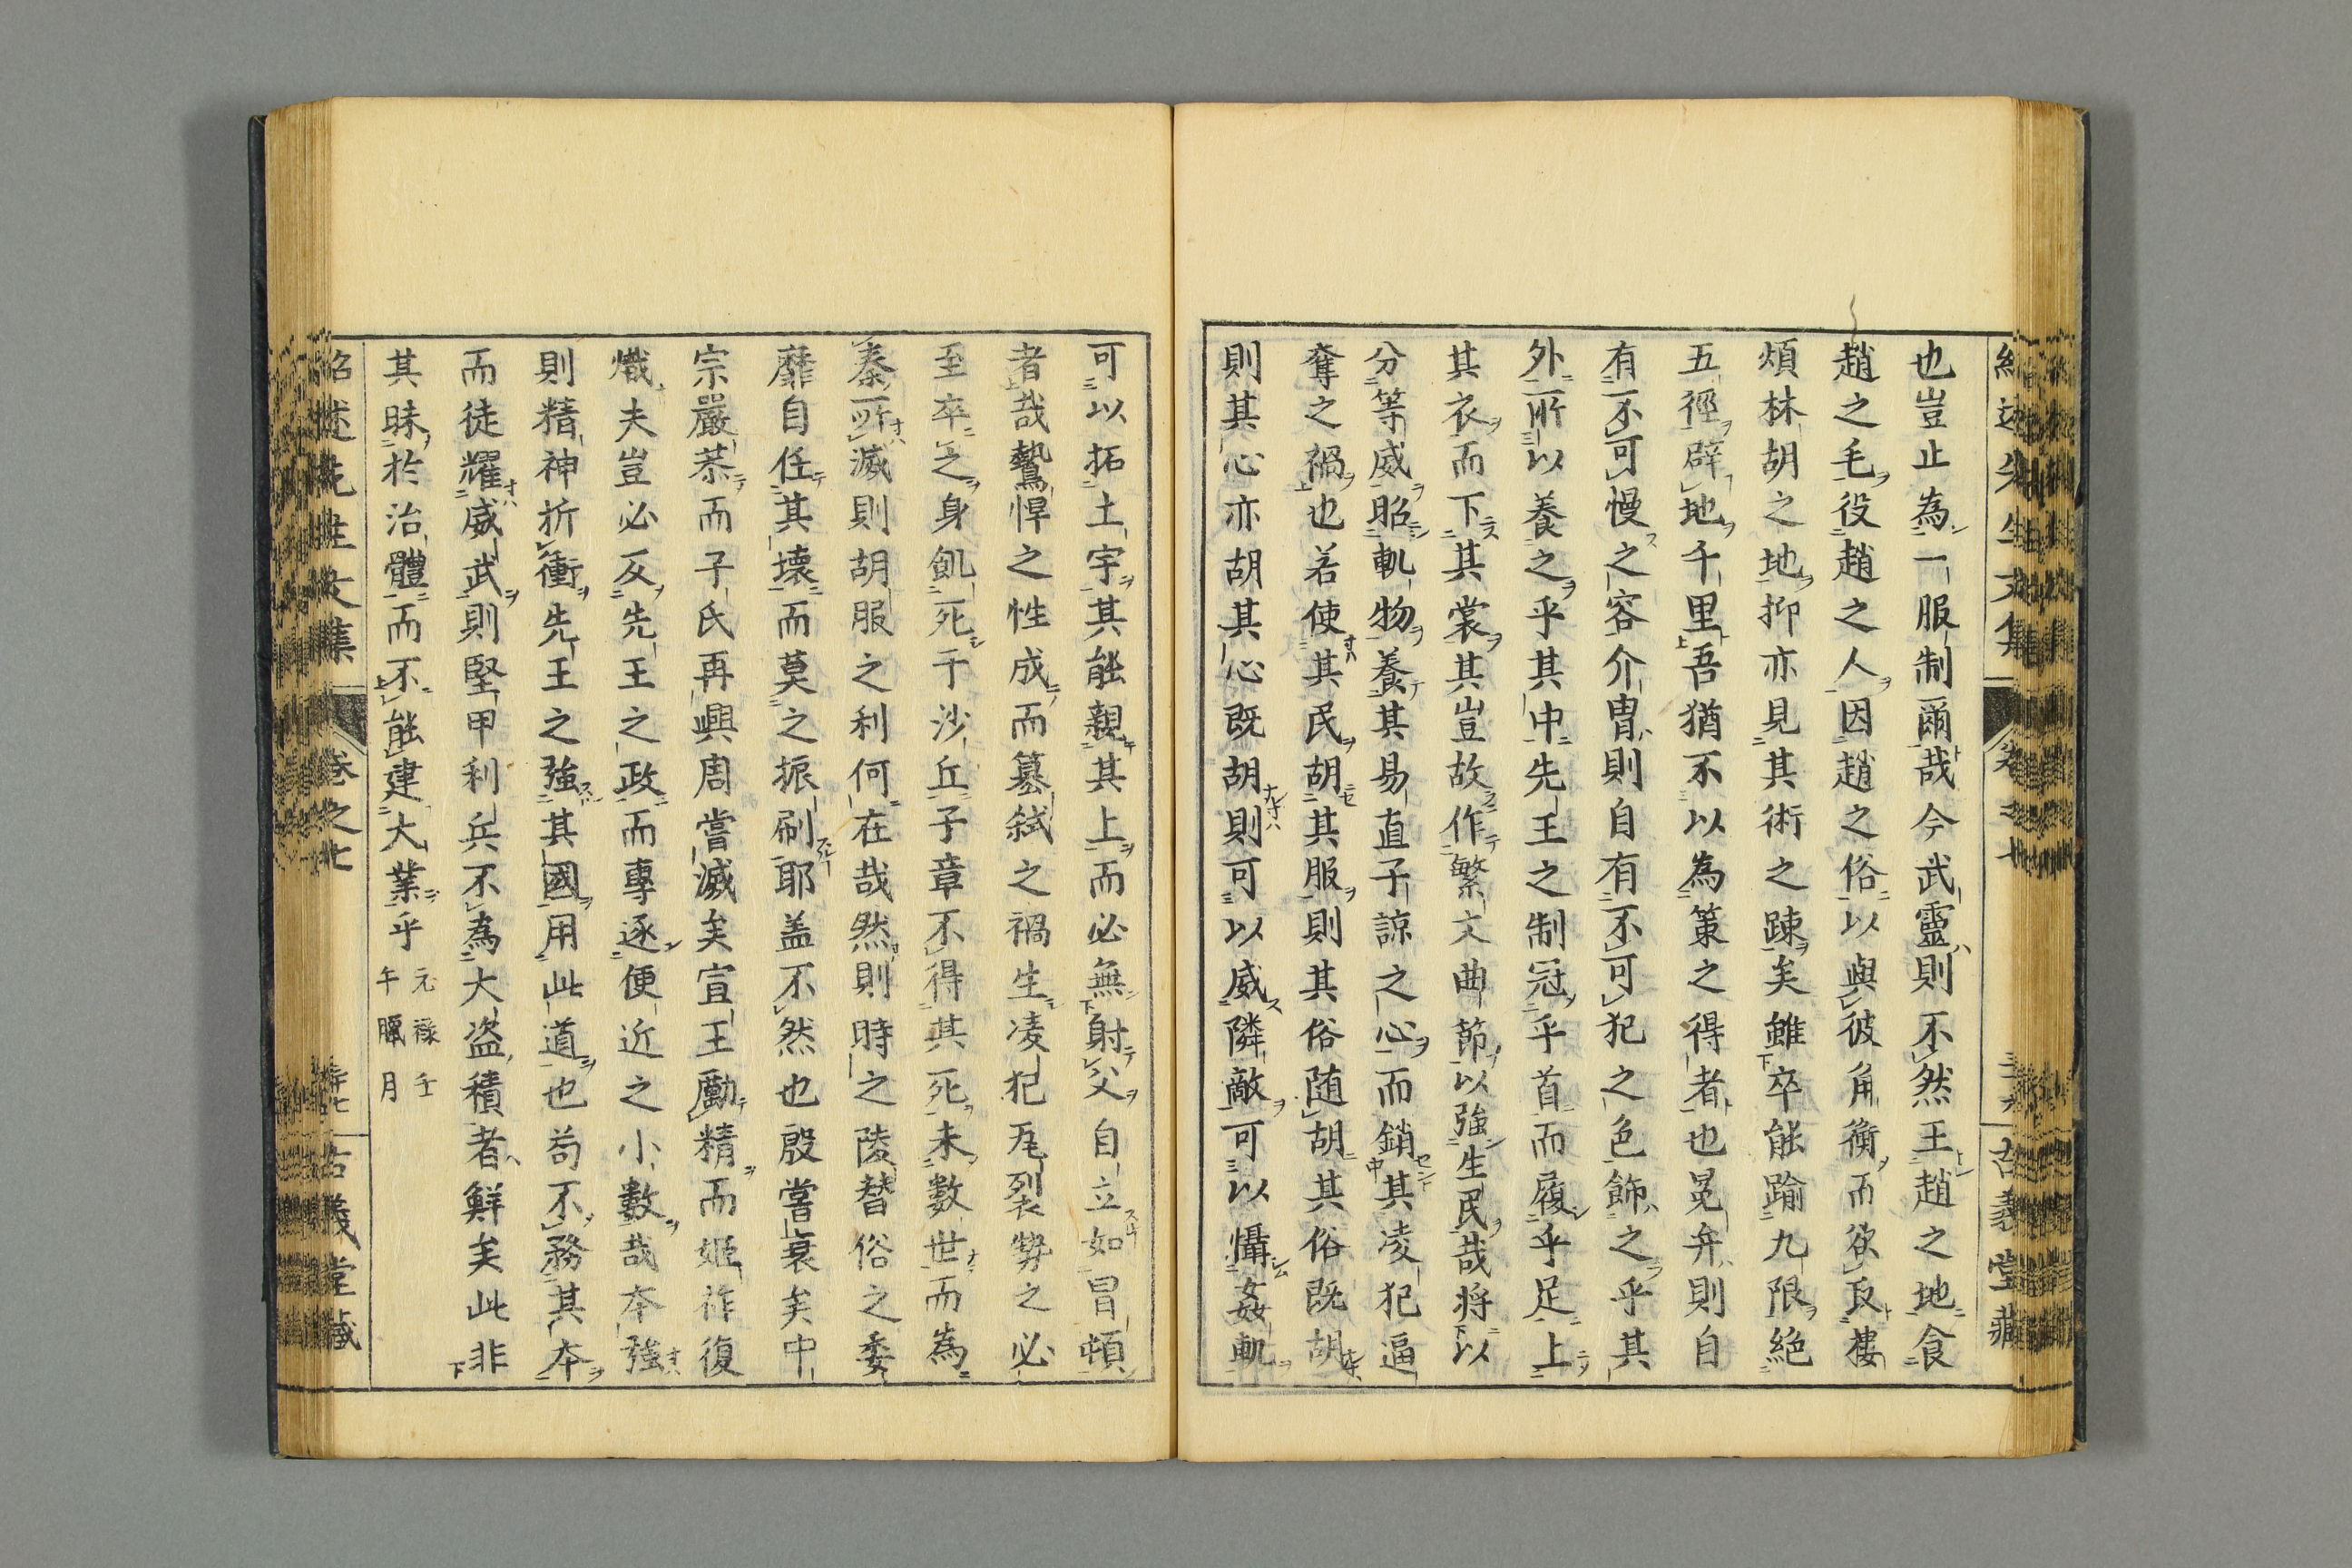 也豈止為一服制爾哉今武靈則不然王趙之地食
趙之毛役趙之人因趙之俗以與彼角衡而欲反樓
煩林胡之地抑亦見其術之踈矣雖卒能踰九限絕
五徑辟地千里吾猶不以為策之得者也冕弁則自
有不可慢之容介冑則自有不可犯之色飾之乎其
外所以養之乎其中先王之制冠乎首而履乎足上
其衣而下其裳其豈故作繁文曲節以強生民哉将以
分等威昭軌物養其易直子諒之心而銷其凌犯逼
奪之禍也若使其民胡其服則其俗随胡其俗既胡
則其心亦胡其心既胡則可以威隣敵可以懾姦軌
可以拓土宇其能親其上而必無射父自立如冒頓
者哉鷙悍之性成而簒弑之禍生凌犯尾裂勢之必
至卒之身飢死于沙丘子章不得其死未數世而為
秦所滅則胡服之利何在哉然則時之陵替俗之委
靡自任其壊而莫之振刷耶盖不然也殷嘗衰矣中
宗嚴恭而子氏再興周嘗滅矣宣王勵精而姬祚復
熾夫豈必反先王之政而專逐便近之小數哉本強
則精神折衝先王之強其國用此道也苟不務其本
而徒耀威武則堅甲利兵不為大盗積者鮮矣此非
其昧於治體而不能建大業乎 元祿壬午臘月
紹述先生文集 卷之七 古義堂藏